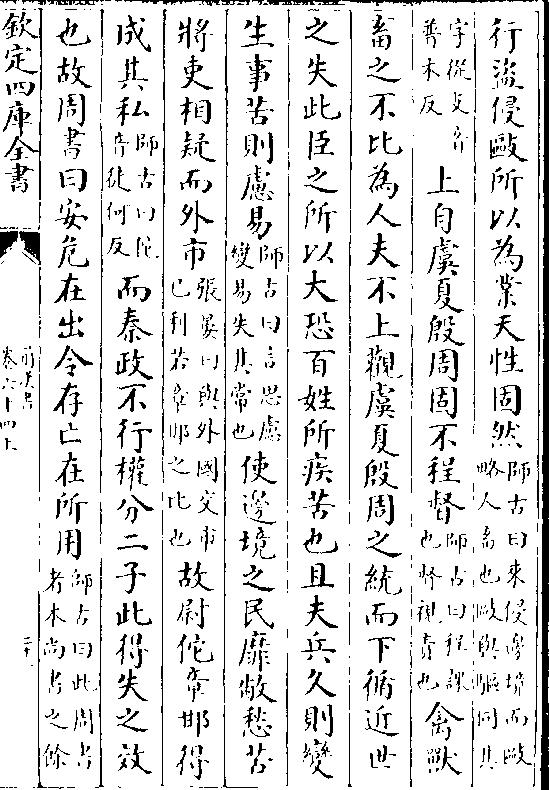 行盜侵敺所以為業天性固然師古曰來侵邊境而敺略人畜也敺與驅同其
字從攴音普木反上自虞夏殷周固不程督師古曰程課也督視責也禽獸
畜之不比為人夫不上觀虞夏殷周之統而下循近世
之失此臣之所以大恐百姓所疾苦也且夫兵久則變
生事苦則慮易師古曰言思慮變易失其常也使邊境之民靡敝愁苦
將吏相疑而外市張晏曰與外國交市已利若章邯之比也故尉佗章邯得
成其私師古曰佗音徒何反而秦政不行權分二子此得失之效
也故周書曰安危在出令存亡在所用師古曰此周書者本尚書之餘
欽定四庫全書
前漢書
卷六十四上